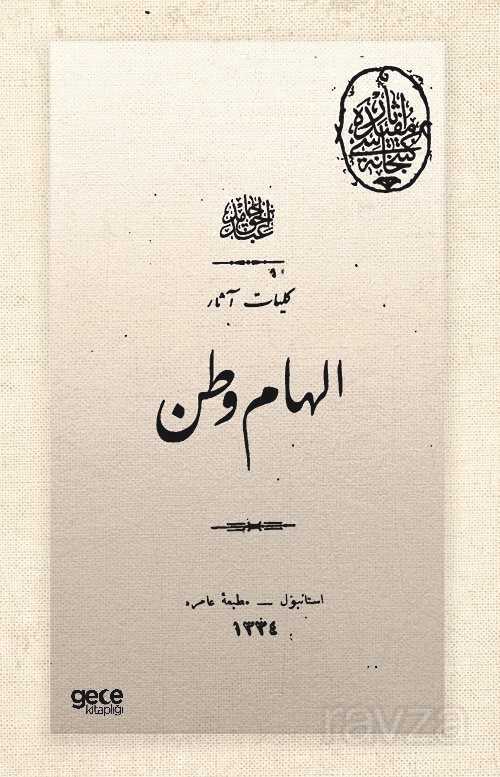 مفید آثار
كتبخانه سی
عبدالحق حامد
كلیات آثار
الهام وطن
استانبول — مطبعهٔ عامره
١٣٣٤
gece
kitaplığı
ravza